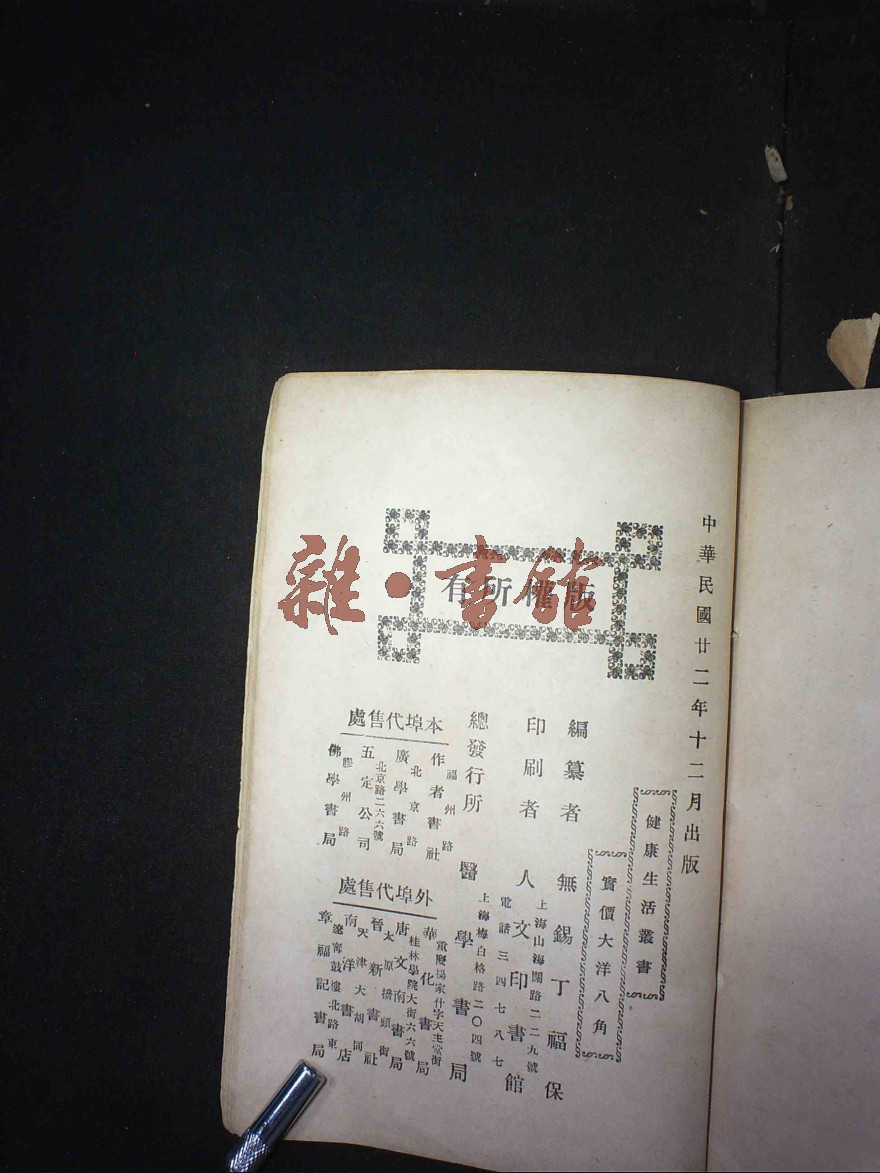 中華民國廿二年十二月出版
健康生活叢書
實價大洋八角
版權所有
雜·書館
編纂者 無錫丁福保
印刷者 人文印書館
上海山海關路二二九號
電話三四七八七
總發行所 醫學書局
上海梅白格路二〇四號
本埠代售處
福州路
作者書社
北京路
廣學書局
北京路二六六號
五定公司
膠州路
佛學書局
外埠代售處
重慶揚家什字天主堂街
華化書局
桂林學院大街六六號
唐文南書局
太原橋頭街
晉新書社
天津大胡同
南洋書店
遼寧鼓樓北路東
章福記書局